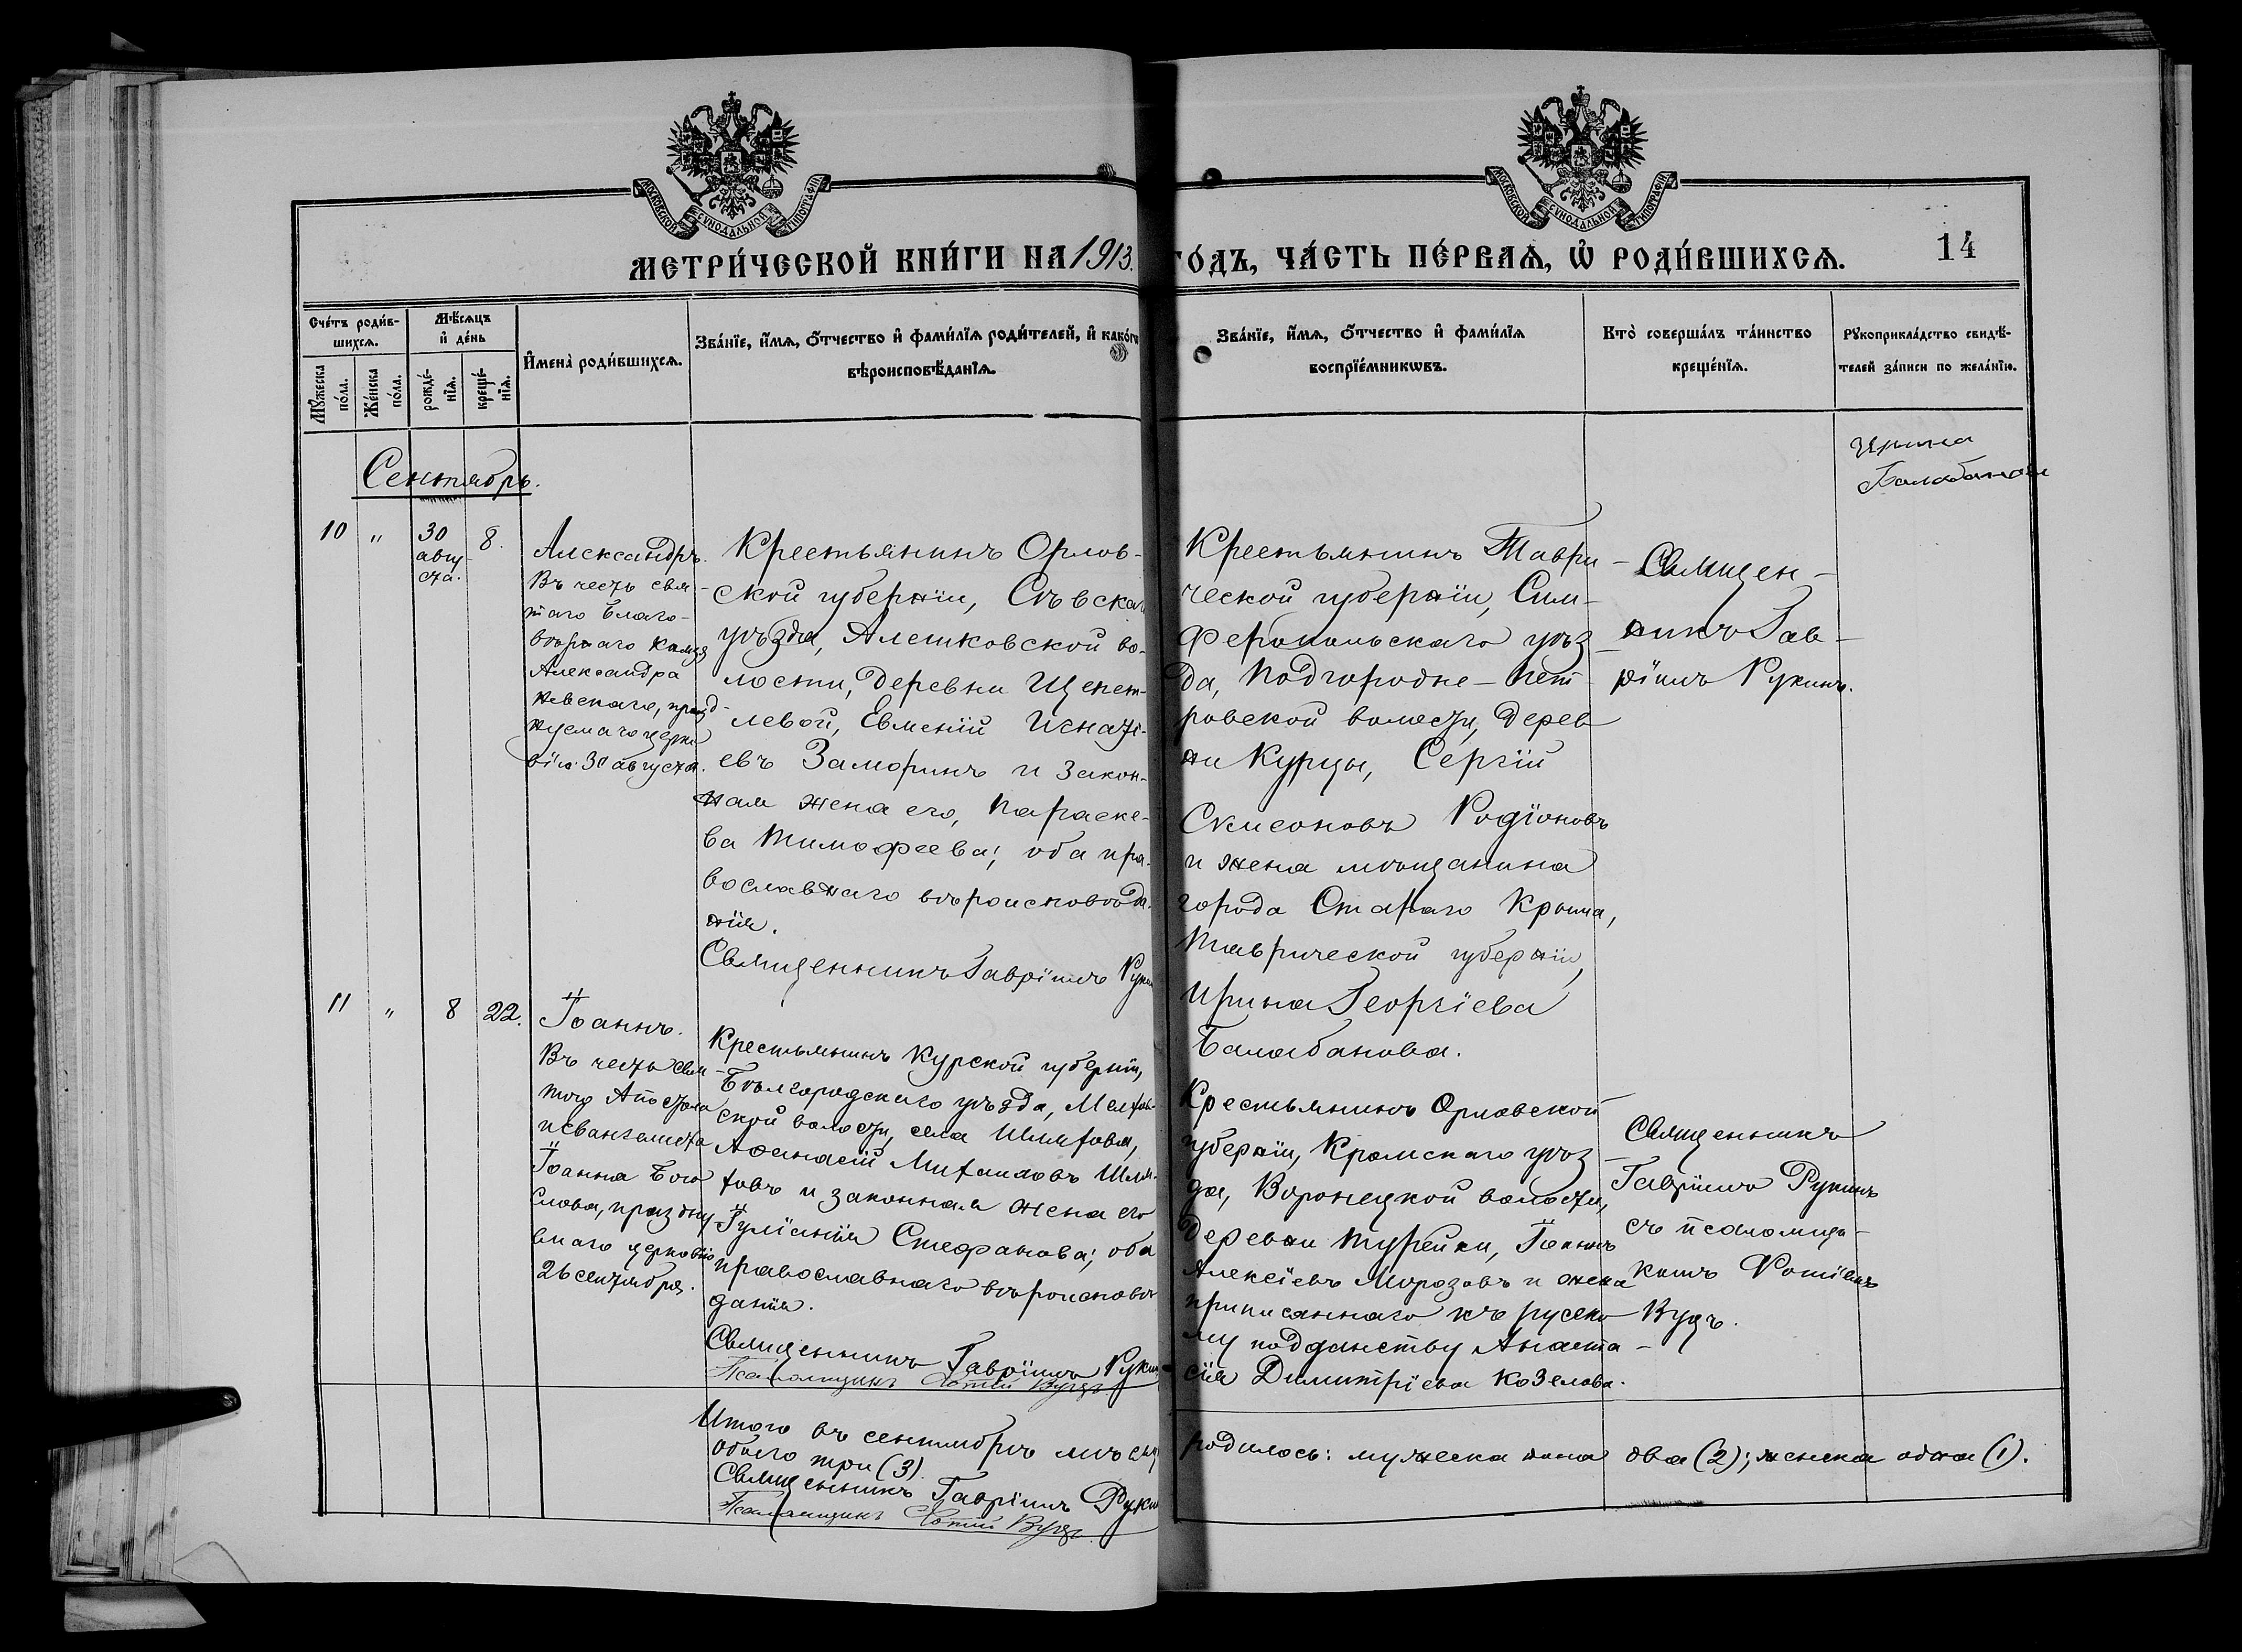 МОСКОВСКОЙ СѴНОДАЛЬНОЙ ТИПОГРАФІИ
МОСКОВСКОЙ СѴНОДАЛЬНОЙ ТИПОГРАФІИ
МЕТРИ́ЧЕСКОЙ КНИ́ГИ НА 1913.
ГО́ДЪ, ЧА́СТЬ ПЕ́РВАѦ, Ѡ҆ РОДИ́ВШИХСѦ.
14
Сче́тъ роди́в-
шихсѧ.
Мѣ́сѧцъ
и҆ де́нь
Мꙋ́жеска
по́ла.
Же́нска
по́ла.
рожде́-
нїѧ.
креще́-
нїѧ.
И҆мена̀ роди́вшихсѧ.
Зва́нїе, и҆́мѧ, ѻ҆́тчество и҆ фами́лїѧ роди́телей, и҆ како́гѡ
вѣроисповѣ́данїѧ.
Зва́нїе, и҆́мѧ, ѻ҆́тчество и҆ фами́лїѧ
воспрїе́мникѡвъ.
Кто̀ соверша́лъ та́инство
креще́нїѧ.
Рꙋкоприкла́дство свидѣ́-
телей за́писи по жела́нїю.
Сентябрь.
Ирина
Балабанова
10 " 30
авгу-
ста.
8.
Александръ.
Въ честь свя-
таго благо-
вѣрнаго Князя
Александра
Невскаго, празд-
нуемаго церко-
вію 30 августа.
Крестьянинъ Орлов-
ской губерніи, Сѣвскаго
уѣзда, Алешковской во-
лости, деревни Щепет-
левой, Евменій Игнатi-
евъ Заморинъ и закон-
ная жена его, Параске-
ва Тимофеева; оба пра-
вославнаго вѣроисповѣда-
нія.
Священникъ Гавріилъ Рукинъ
Крестьянинъ Таври-
ческой губерніи, Сим-
феропольскаго уѣз-
да, Подгородне-Пет-
ровской волости, дерев
ни Курцы, Сергій
Родіоновъ
и жена мѣщанина
города Стараго Крыма,
Таврической губерніи,
Ирина Георгіева
Балабанова.
Священ-
никъ Гав-
ріилъ Рукинъ.
11 " 8 22.
Іоаннъ.
Въ честь свя-
того Апостола
и евангелиста
Іоанна Бого
слова, праздну
емаго церковію
26 сентября.
Крестьянинъ Курской губерніи,
Бѣлгородскаго уѣзда, Мелехов-
ской волости, села Шляхова,
Аѳанасій Михаиловъ Шля-
ховъ и законная жена его
Іуліанія Стефанова; оба
православнаго вѣроисповѣ
данія.
Священникъ Гавріилъ Рукинъ
Псаломщикъ Фотій Вуцъ
Крестьянинъ Орловской
губерніи, Кромскаго уѣз-
да, Воронецкой волости,
деревни Турейки, Іоаннъ
Алексіевъ Морозовъ и жена
приписаннаго къ русско-
му подданству Анаста-
сія Димитріева Козелова.
Священникъ
Гавріилъ Рукинъ
съ псаломщи-
комъ Фотіемъ
Вуцъ.
Итого въ сентябрѣ мѣсяцѣ
родилось: мужеска пола два (2); женска одна (1).
обоего три (3).
Священникъ Гавріилъ Рукинъ
Псаломщикъ Фотій Вуцъ